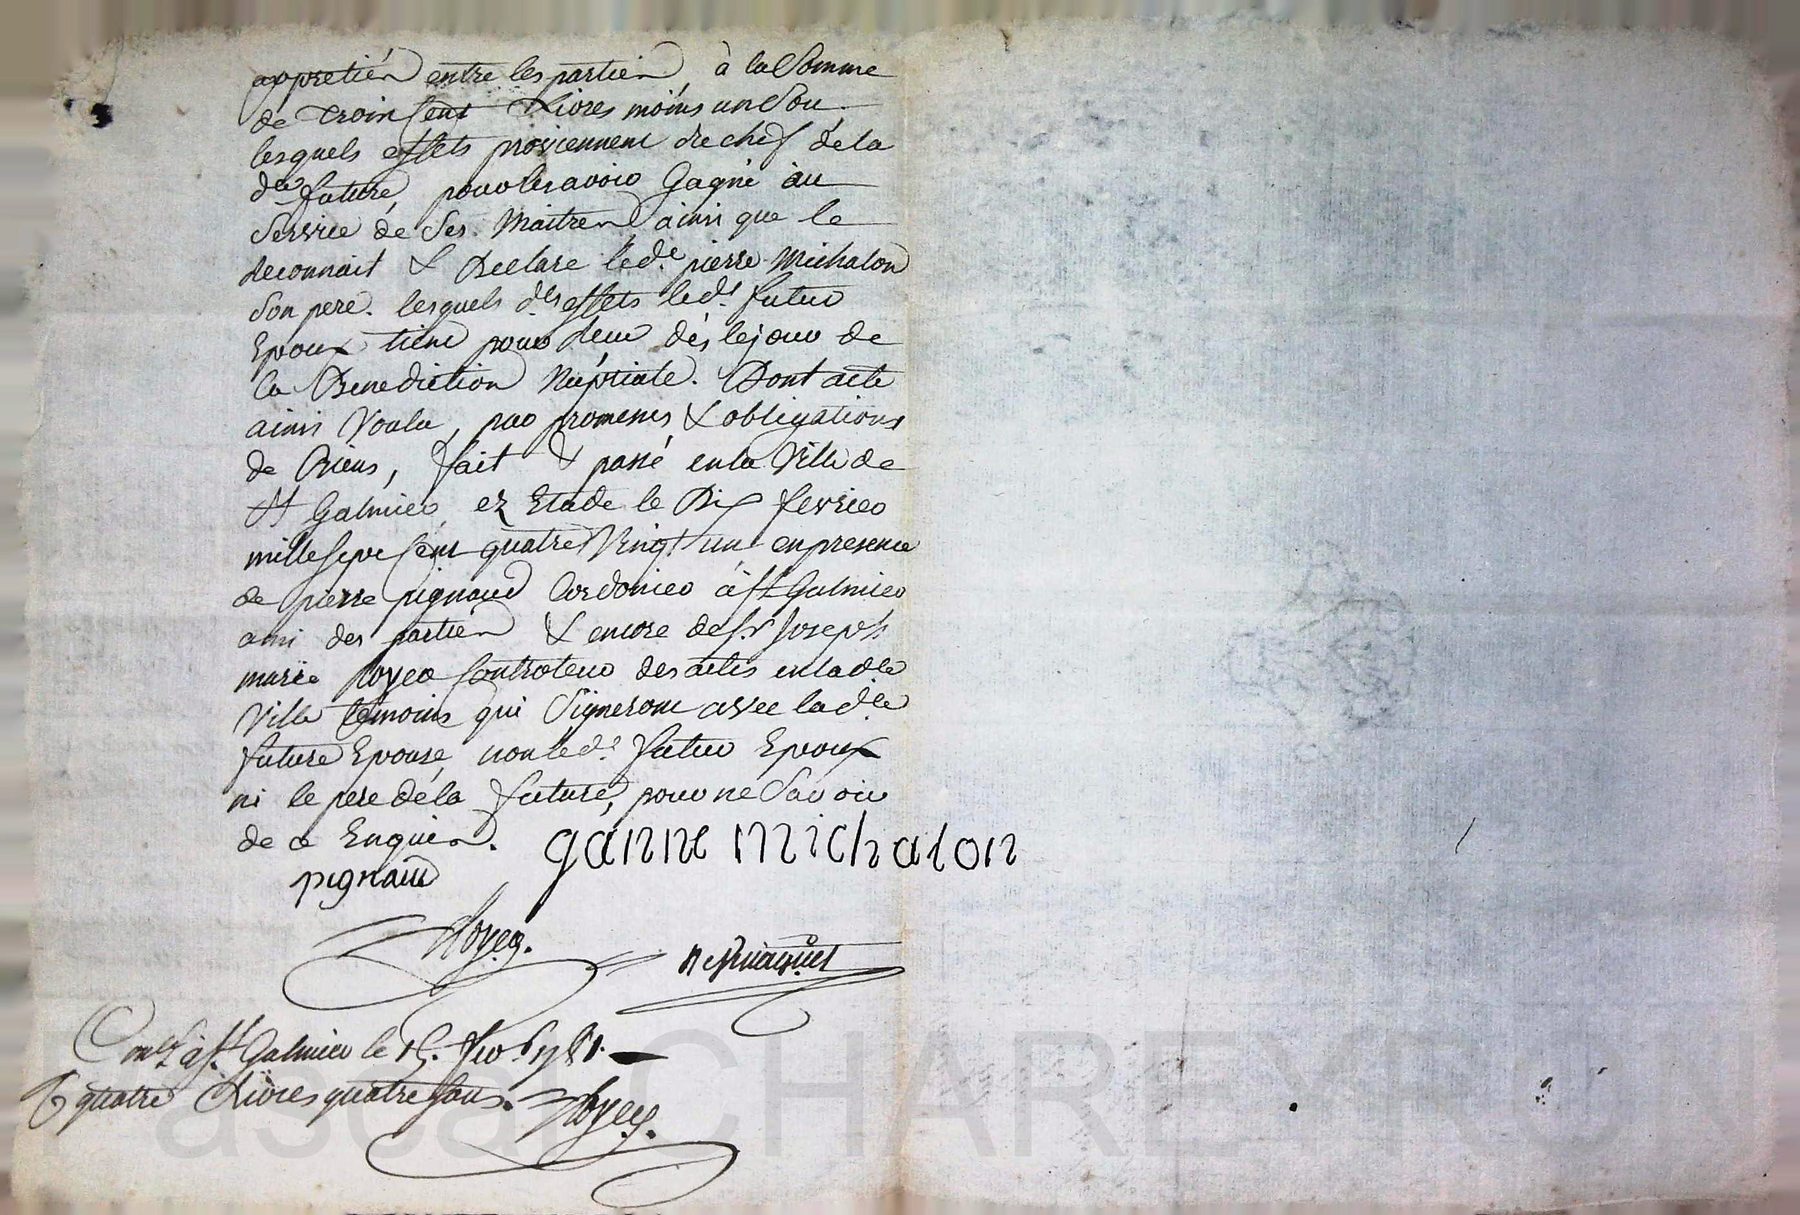 appretiés entre les parties, à la Somme
de trois Cent Livres moins un Sou.
lesquels effets proviennent de chef de la
de. future, pour les avoir Gagné au
Service de Ses Maitres, ainsi que le
reconnait & Declare led. pierre Michalon
Son pere. lesquels ds. effets led. futur
Epoux tient pour reçu dès le jour de
la Benediction Nuptiale. Dont acte
ainsi Voulu, par promesses & obligations
de Biens, fait & passé en la Ville de
St Galmier ez Etude le Dix fevrier
mille Sept Cent quatre Vingt un en presence
de pierre pignaud Cordonier à St Galmier
ami des parties & encore de Sr Joseph
marie Royer Controleur des actes en lad.e
Ville temoins qui Signeront avec lad.e
future Epouse, non led. futur Epoux
ni le pere de la future, pour ne Savoir
de ce Enquis.
ganne michalon
pignaud
Royer.
Conlé à St Galmier le 15. fro. 1781.
R quatre Livres quatre Sous. Royer.
Pascal CHAREYRON